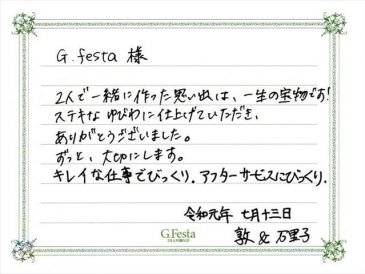 G.festa 様
2人で一緒に作った思い出は、一生の宝物です!
ステキなゆびわに仕上げていただき、
ありがとうございました。
ずっと、大切にします。
キレイな仕事でびっくり.アフターサービスにびっくり.
令和元年 七月十三日
敦 & 万里子
G.Festa
DIAMOND